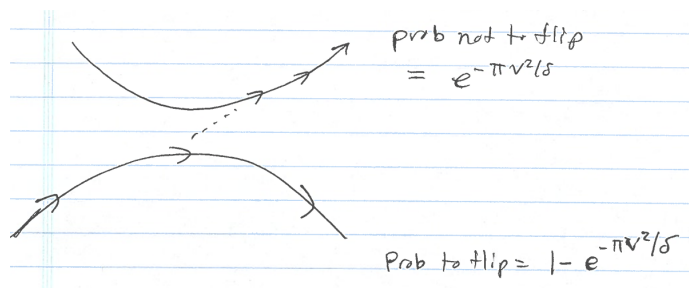 prob not to flip
= e^{-πV²/δ}
Prob to flip = 1 - e^{-πV²/δ}